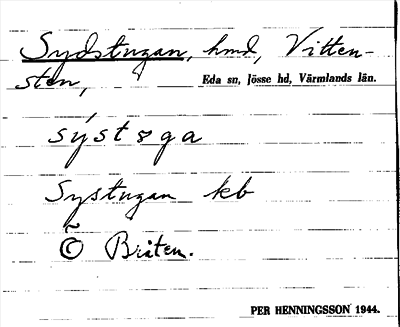 Sydstugan, hmd, Vitten-
sten,
Eda sn, Jösse hd, Värmlands län.
sýstøga
Systugan kb
õ Bråten.
PER HENNINGSSON 1944.